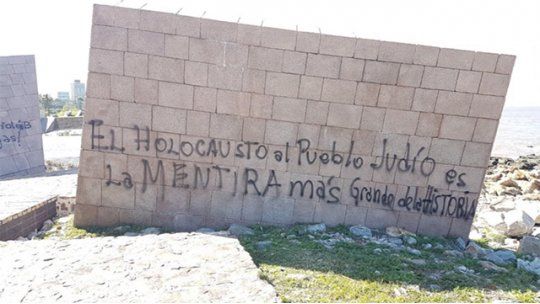 EL HOLOCAUSTO al PUEBLO JUDÍO es
La MENTIRA más GRANDE de la HISTORIA